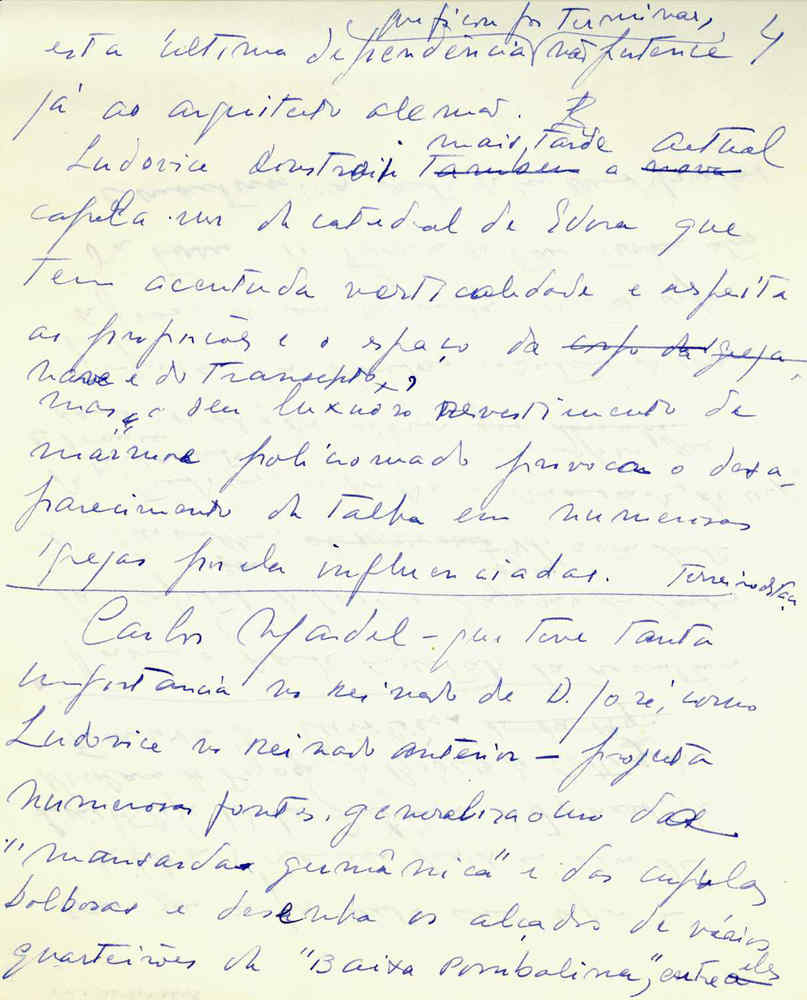 que ficou por terminar, 4
esta última dependência não pertence
já ao arquitecto alemão.
mais tarde actual
Ludovice constroi também a nova
capela-mor da catedral de Évora que
tem acentuada verticalidade e respeita
as proporções e o espaço da corpo da igreja,
nave e do transepto,
mas o seu luxuoso revestimento de
mármore policromado provoca o desa-
parecimento da talha em numerosas
igrejas por ela influenciadas. Terreiro do Paço
Carlos Mardel – que teve tanta
importância no reinado de D. José, como
Ludovice no reinado anterior – projecta
numerosas fontes, generalização da
"mansarda germânica" e das cupulas
bolbosas e desenha os alçados de vários
quarteirões da "Baixa Pombalina", entre eles